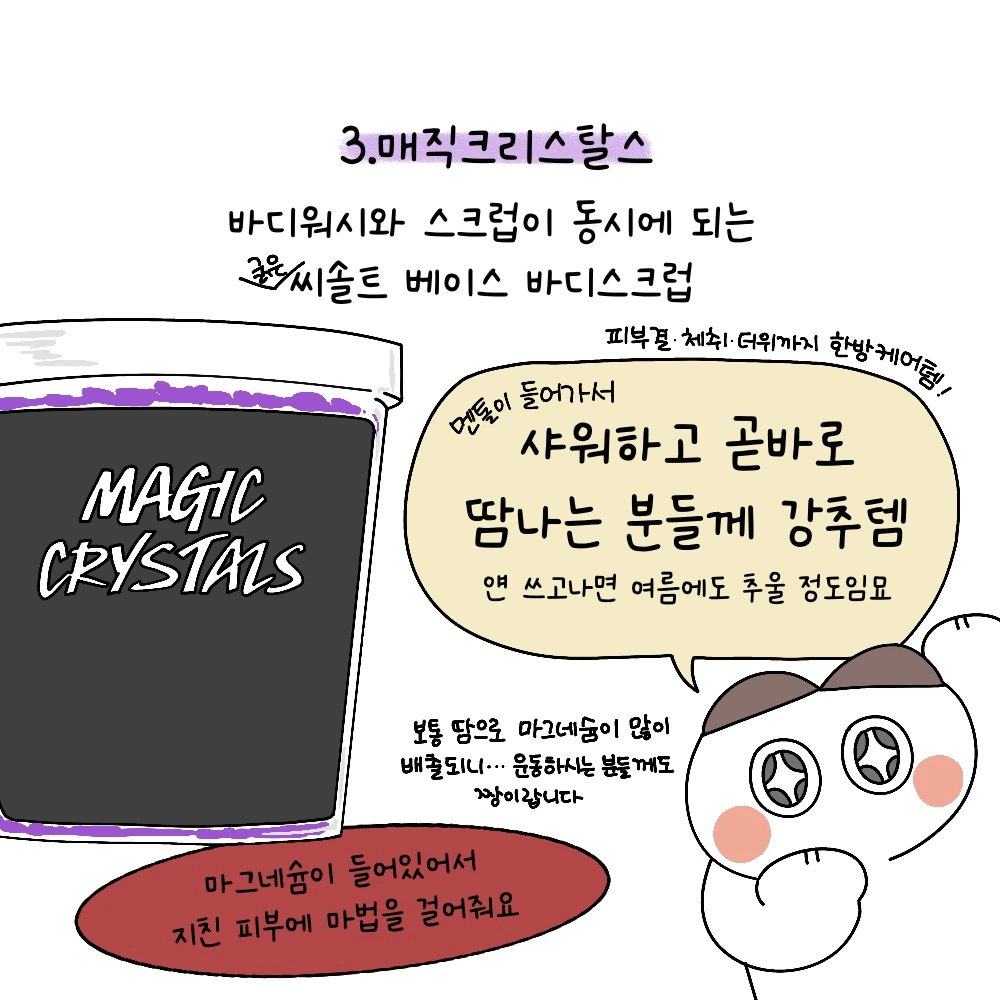 3.매직크리스탈스
바디워시와 스크럽이 동시에 되는
굵은 씨솔트 베이스 바디스크럽
피부결·체취·더위까지 한방케어템!
멘톨이 들어가서
샤워하고 곧바로
땀나는 분들께 강추템
얜 쓰고나면 여름에도 추울 정도임묘
MAGIC
CRYSTALS
보통 땀으로 마그네슘이 많이
배출되니... 운동하시는 분들께도
짱이랍니다
마그네슘이 들어있어서
지친 피부에 마법을 걸어줘요